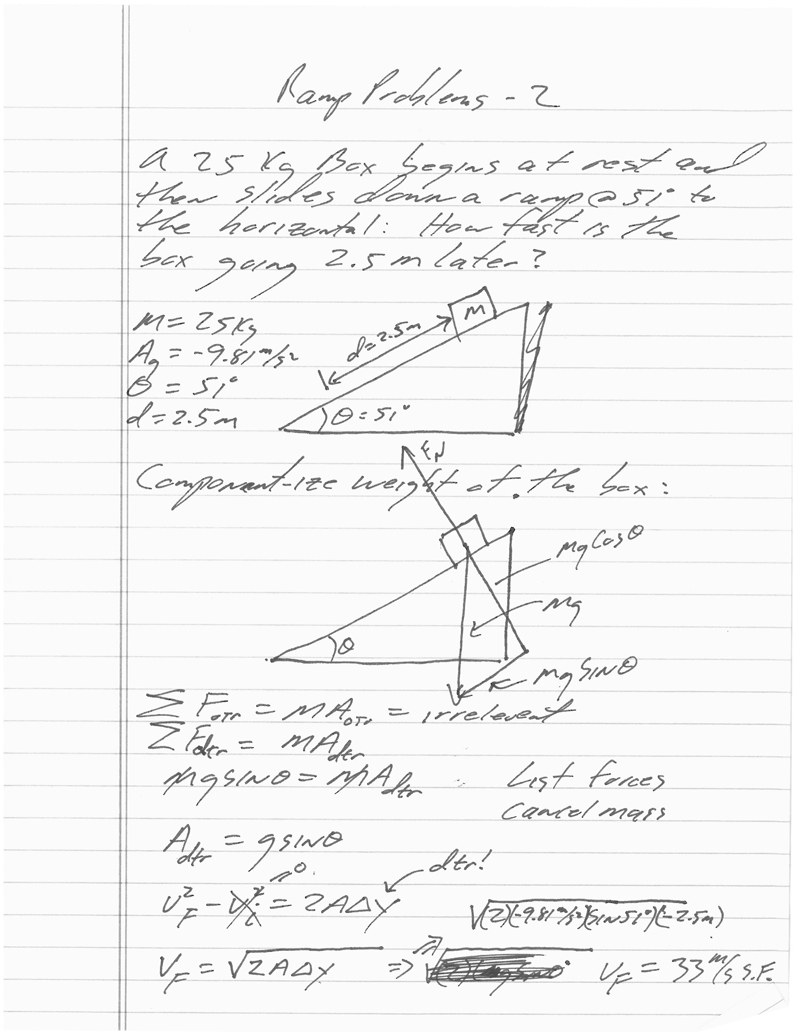 Ramp Problems - 2
A 25 Kg Box begins at rest and
then slides down a ramp @ 51° to
the horizontal: How fast is the
box going 2.5 m later?
M = 25 Kg
Ag = -9.81 m/s²
θ = 51°
d = 2.5 m
d = 2.5m
M
θ = 51°
Component-ize weight of the box:
FN
mg cos θ
mg
mg sin θ
θ
ΣF_otr = MA_otr = irrelevent
ΣF_dtr = MA_dtr
mg sin θ = MA_dtr
List Forces
Cancel mass
A_dtr = g sin θ
dtr!
V_F² - V_i² = 2AΔY
=0
√(2)(-9.81 m/s²)(sin 51°)(-2.5m)
V_F = √2AΔy =>
V_F = 33 m/s S.F.